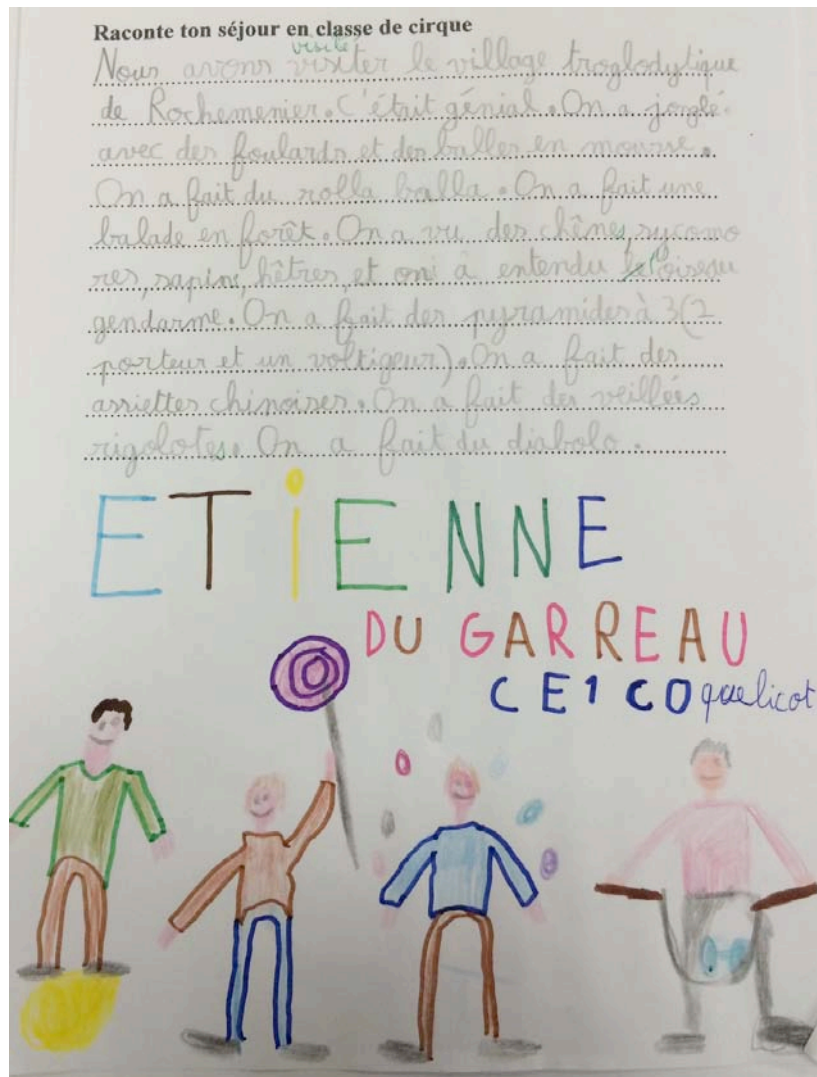 Raconte ton séjour en classe de cirque
visité
Nous avons visiter le village troglodytique
de Rochemenier. C'était génial. On a jonglé
avec des foulards et des balles en mousse.
On a fait du rolla balla. On a fait une
balade en forêt. On a vu des chênes, sycomo
res, sapins, hêtres, et oni à entendu l'oiseau
gendarme. On a fait des pyramides à 3(2
porteur et un voltigeur). On a fait des
assiettes chinoises. On a fait des veillées
rigolotes. On a fait du diabolo.
ETiENNE
DU GARREAU
CE1 COquelicot